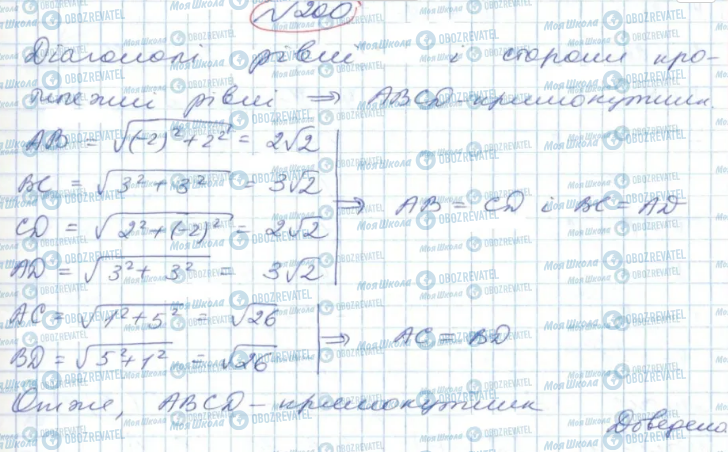 №200
Діагоналі рівні і сторони про-
тилежні рівні ⇒ ABCD-прямокутник.
AB = √((-2)²+2²) = 2√2
BC = √(3²+3²) = 3√2
CD = √(2²+(-2)²) = 2√2 ⇒ AB = CD і BC = AD
AD = √(3²+3²) = 3√2
AC = √(1²+5²) = √26
BD = √(5²+1²) = √26 ⇒ AC = BD
Отже, ABCD-прямокутник
Доведено
Моя Школа OBOZREVATEL